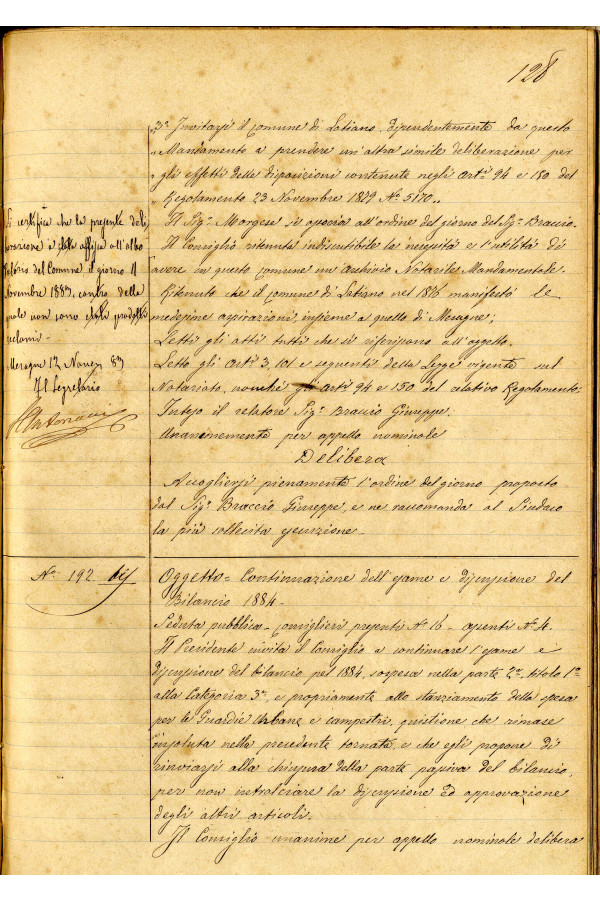 128
„3° Invitarsi il comune di Latiano, dipendentemente da questo
„Mandamento a prendere un'altra simile deliberazione per
gli effetti delle disposizioni contenute negli Art.i 94 e 150 del
Regolamento 23 Novembre 1879 N° 5170„
Il Sig.r Morgese si associa all'ordine del giorno del Sig.r Braccio.
Il Consiglio ritenuta indiscutibile la necessità e l'utilità di
avere in questo comune un archivio Notarile Mandamentale.
Ritenuto che il comune di Latiano nel 1876 manifestò le
medesime aspirazioni, insieme a quello di Mesagne;
Letti gli atti tutti che si riferiscono all'oggetto.
Letto gli Art.i 3, 101 e seguenti della Legge vigente sul
Notariato, nonché gli Art.i 94 e 150 del relativo Regolamento.
Inteso il relatore Sig.r Braccio Giuseppe.
Unanimemente per appello nominale
Delibera
Accogliersi pienamente l'ordine del giorno proposto
dal Sig.r Braccio Giuseppe, e ne raccomanda al Sindaco
la più sollecita esecuzione.
Si certifica che la presente deli
berazione è stata affissa all'albo
Pretorio del Comune il giorno 11
Novembre 1883, contro della
quale non sono stati prodotti
reclami.
Mesagne 12 Nov.e 83
Il Segretario
N.° 192 bis
Oggetto = Continuazione dell'esame e discussione del
Bilancio 1884.
Seduta pubblica = consiglieri presenti N° 16 = assenti N° 4.
Il Presidente invita il Consiglio a continuare l'esame e
discussione del bilancio pel 1884, sospesa nella parte 2a, titolo 1°
alla Categoria 3a, e propriamente allo stanziamento della spesa
per le Guardie Urbane e campestri, quistione che rimase
insoluta nella precedente tornata, e che egli propone di
rinviarsi alla chiusura della parte passiva del bilancio,
per non intralciare la discussione ed approvazione
degli altri articoli.
Il Consiglio unanime per appello nominale delibera